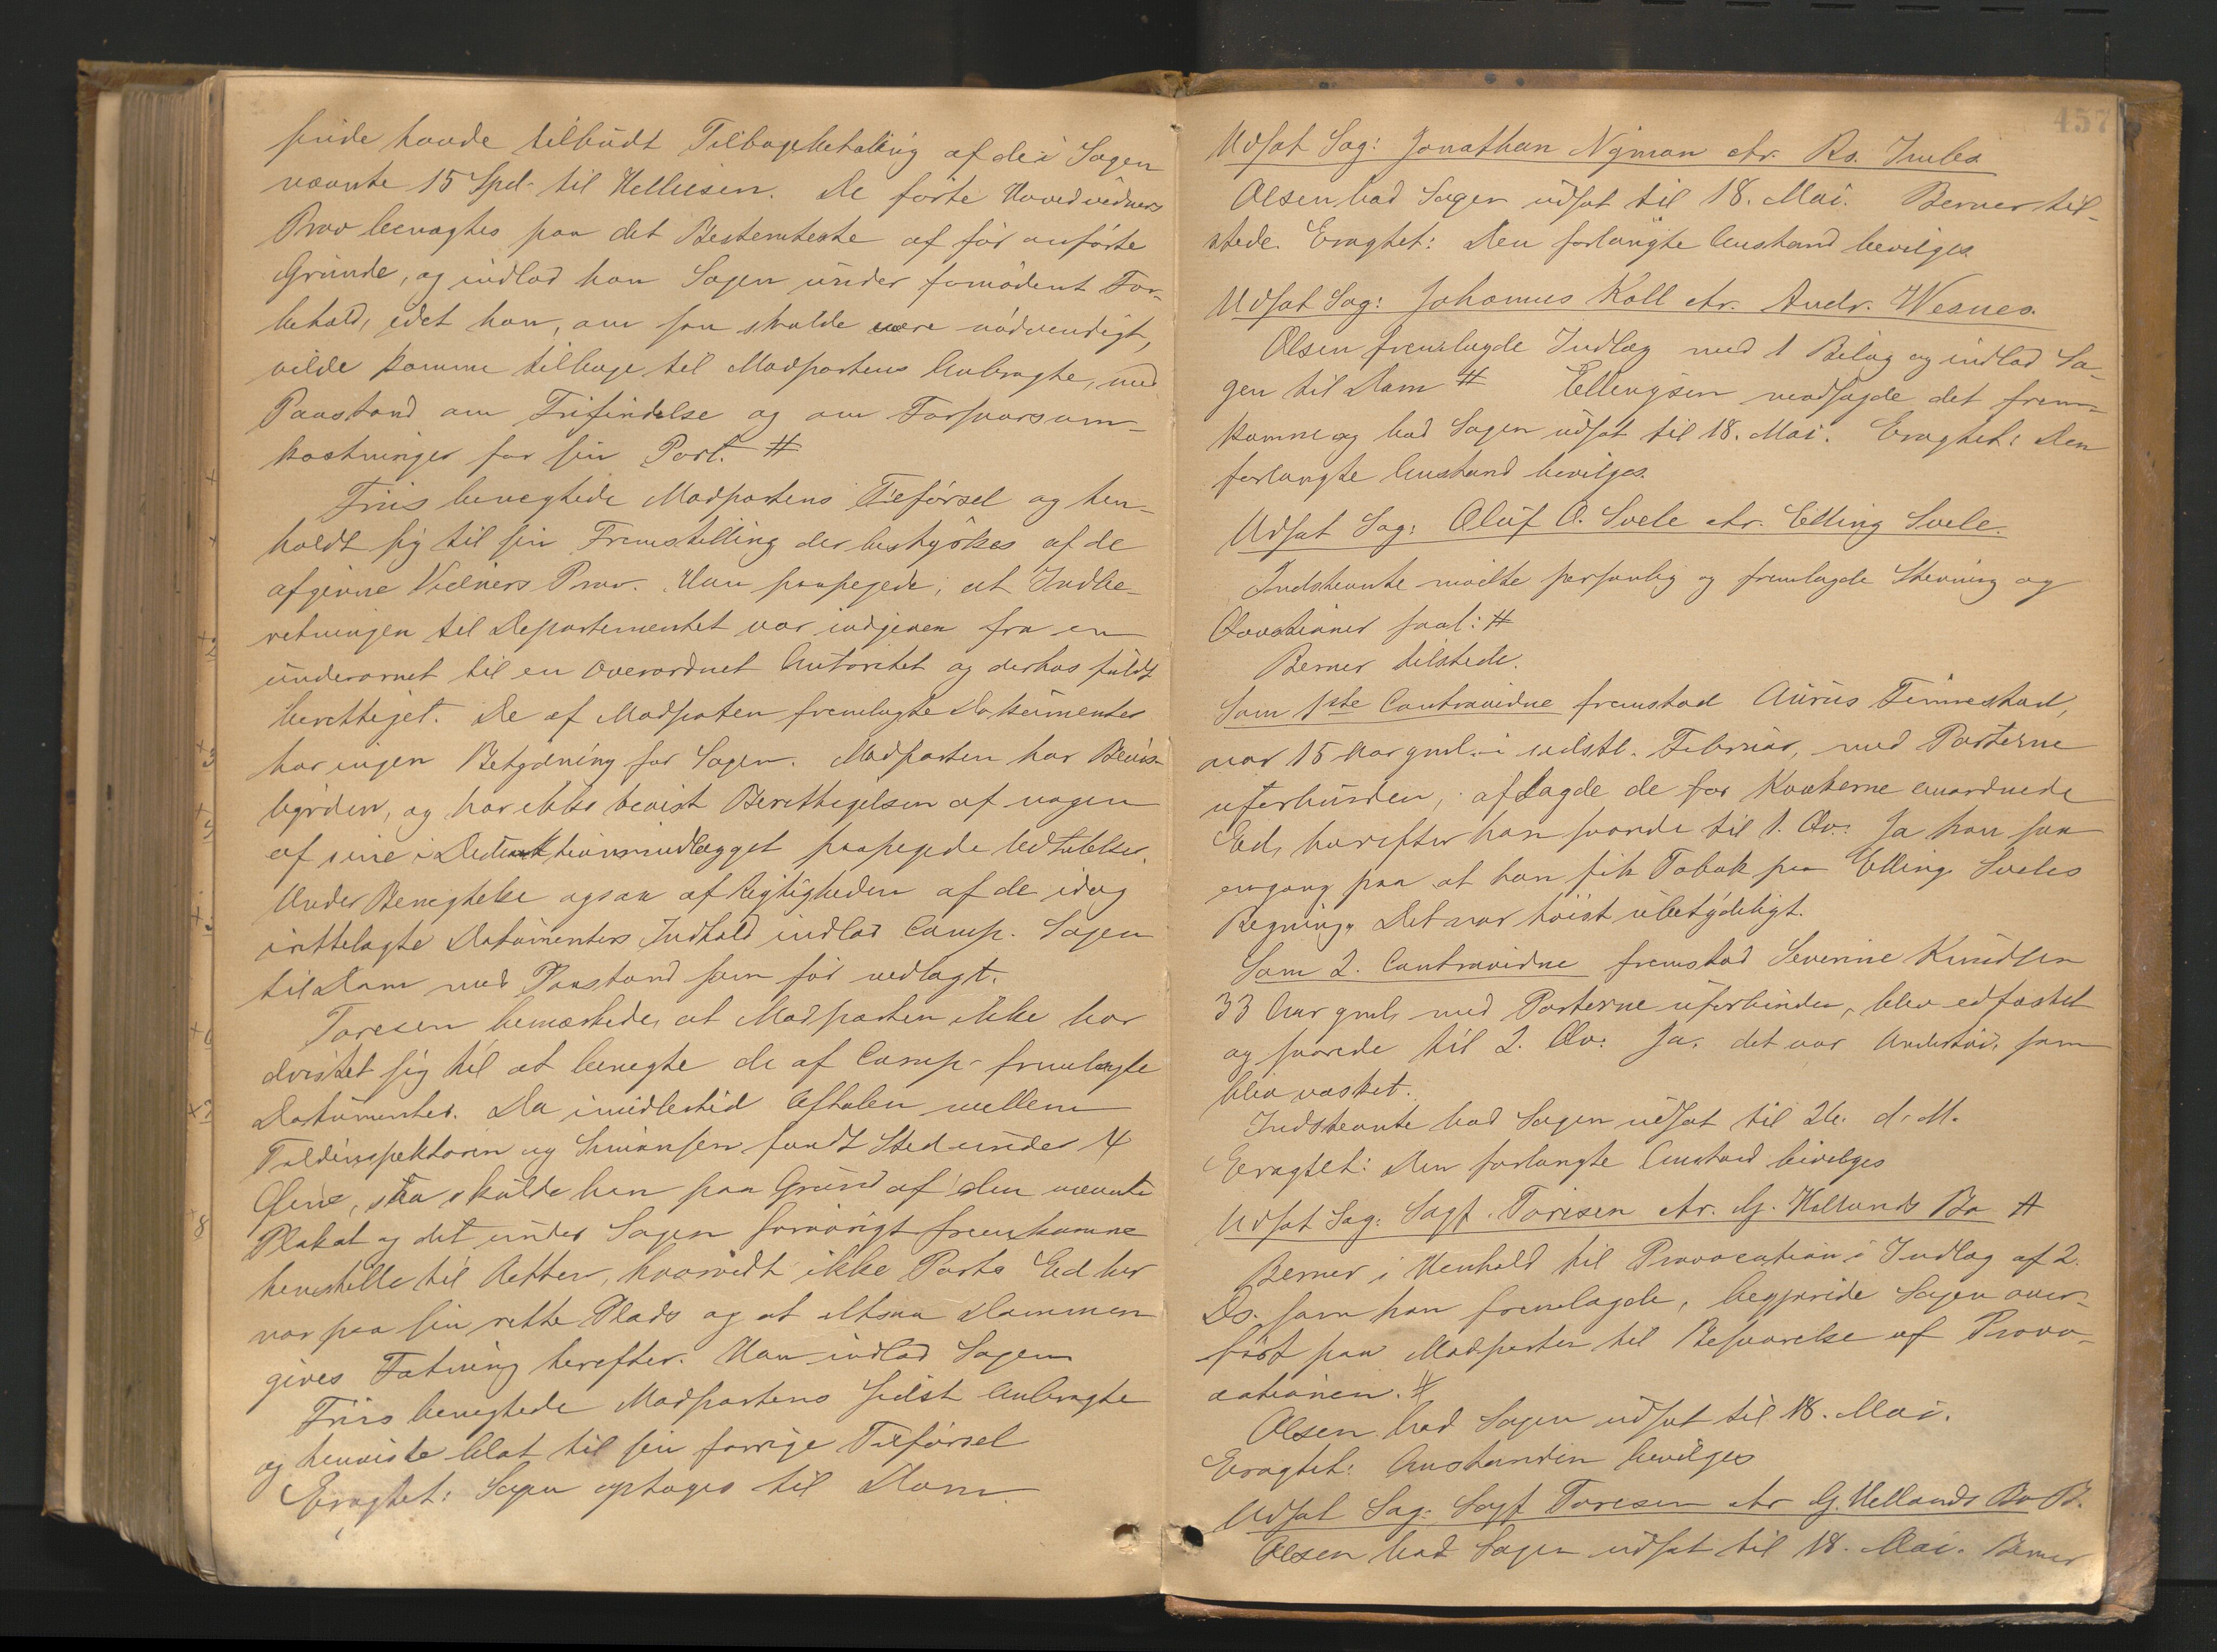 sinde havde tilbudt Tilbagebetaling af de i Sagen
nævnte 15 Spd. til Helliesen. De førte Hovedvidners
Prov benægtes paa det Bestemteste af før anførte
Grunde, og indlod han Sagen under fornødent For-
behold, idet han, om saa skulde være nødvendigt,
vilde komme tilbage til Modpartens Anbragte, med
Paastand om Frifindelse og om Forsvarsom-
kostninger for sin Part. #
Friis benægtede Modpartens Tilførsel og hen-
holdt sig til sin Fremstilling der bestyrkes af de
afgivne Vidners Prov. Han paapegede, at Indbe-
retningen til Departementet var indgiven fra en
underornet til en overordnet Autoritet og derhos fuldt
berettiget. De af Modparten fremlagte Dokumenter
har ingen Betydning for Sagen. Modparten har Bevis-
byrden, og har ikke bevist Berettigelsen af nogen
af sine i Deduktionsindlægget paapegede Udtalelser.
Under Benægtelse ogsaa af Rigtigheden af de idag
irettelagte Dokumenters Indhold indlod Comp. Sagen
til Dom med Paastand som før nedlagt.
Toresen bemærkede, at Modparten ikke har
dristet sig til at benegte de af Comp. fremlagte
Dokumenter. Da imidlertid Aftalen mellem
Toldinspektøren og Simonsen fandt Sted under 4
Øine, saa skulde han paa Grund af den nævnte
Plakat og det under Sagen forøvrigt fremkomne
henstille til Retten, hvorvidt ikke Parts Ed her
var paa sin rette Plads og at altsaa Dommen
gives Fatning herefter. Han indlod Sagen
Friis benegtede Modpartens sidst Anbragte
og henviste blot til sin forrige Tilførsel
Eragtet: Sagen optages til Dom.
457
Udsat Sag: Jonathan Nyman ctr. Rs.
Olsen bad Sagen udsat til 18. Mai. Berner til-
stede. Eragtet: Den forlangte Anstand bevilges.
Udsat Sag: Johannes Koll ctr. Andr. Wesnes.
Olsen fremlagde Indlæg med 1 Bilag og indlod Sa-
gen til Dom # Ellingsen modsagde det frem-
komne og bad Sagen udsat til 18. Mai. Eragtet: Den
forlangte Anstand bevilges.
Udsat Sag: Oluf O. Svele ctr. Elling Svele.
Indstevnte mødte personlig og fremlagde Stevning og
Qvæstioner saal: #
Berner tilstede.
Som 1ste Contravidne fremstod Finnestad,
var 15 Aar gml. i sidstl. Februar, med Parterne
uforbunden, aflagde de for Kvækerne anordnede
Ed, hvorefter han svarede til 1. Qv: Ja han saa
engang paa at han fik Tobak paa Elling Sveles
Regning. Det var høist ubetydeligt.
Som 2. Contravidne fremstod Severine Knudsen
33 Aar gml, med Parterne uforbunden, blev edfæstet
og svarede til 2. Qv: Ja. det var Undertøi, som
blev vasket.
Indstevnte bad Sagen udsat til 26. d. M.
Eragtet: Den forlangte Anstand bevilges
Udsat Sag: Sagf. Toresen ctr. G. Hellands Bo A
Berner i Henhold til Provocation i Indlæg af 2.
Ds. som han fremlagde, begjærede Sagen over-
ført paa Modparten til Besvarelse af Provo-
cationen. #
Olsen bad Sagen udsat til 18. Mai.
Eragtet: Anstanden bevilges
Udsat Sag: Sagf Toresen ctr G. Hellands Bo B.
Olsen bad Sagen udsat til 18. Mai. Berner